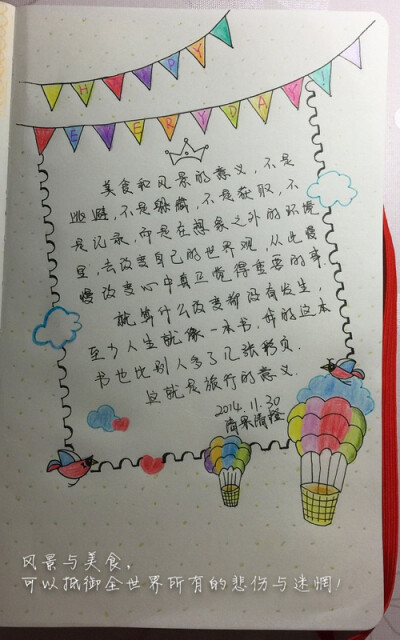 HAPPY
EVERYDAY!
美食和风景的意义，不是
逃避，不是躲藏，不是获取，不
是记录，而是在想象之外的环境
里，去改变自己的世界观，从此慢
慢改变心中真正觉得重要的事。
就算什么改变都没有发生，
至少人生就像一本书，你的这本
书也比别人多了几张彩页。
这就是旅行的意义．
2014.11.30
风景与美食，
可以抵御全世界所有的悲伤与迷惘！